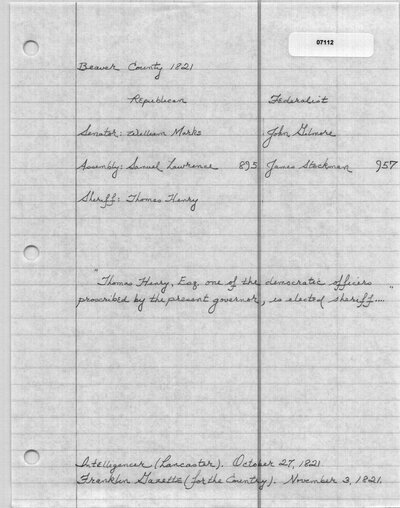 07112
Beaver County 1821
Republican Federalist
Senator: William Marks John Gilmore
Assembly: Samuel Lawrence 895 James Stockman 957
Sheriff: Thomas Henry
"Thomas Henry, Esq. one of the democratic officers
proscribed by the present governor, is elected sheriff...."
Intelligencer (Lancaster). October 27, 1821
Franklin Gazette (for the Country). November 3, 1821.